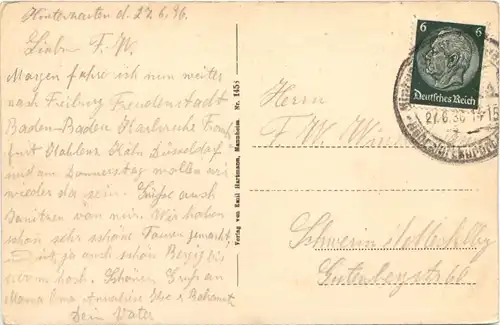 Hinterzarten d. 27.6.36.
Lieber F. W.
Morgen fahre ich nun weiter
nach Freiburg Freudenstadt
Baden-Baden Karlsruhe Frank
furt Koblenz Köln Düsseldorf
und am Donnerstag wollen wir
wieder da sein. Grüße auch
von mir. Wir haben
schon sehr schöne Touren gemacht
ist ja auch schön Bergig bis
hoch. Schönen Gruß an
Mama Oma u. Bekannte
Dein Vater
Verlag von Emil Hartmann, Mannheim Nr. 1455
6 6
Deutsches Reich
27.6.36.
Herrn
F. W.
Schwerin i/Mecklbg
Gutenbergstr 60